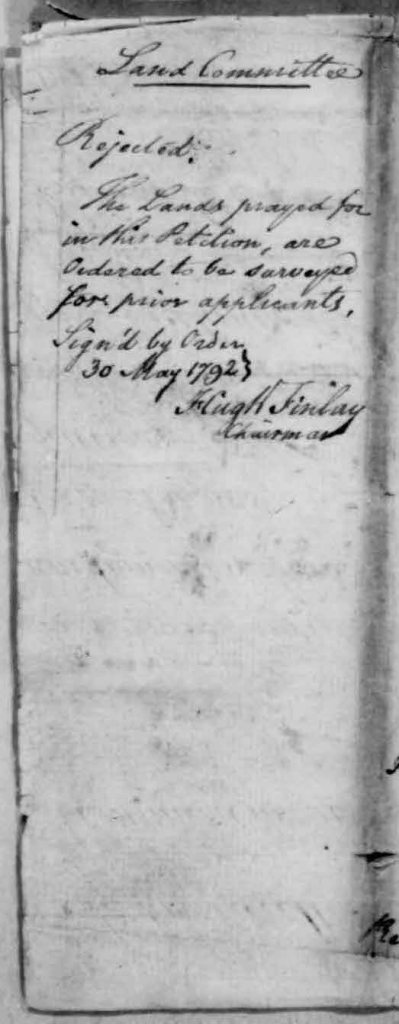 Land Committee
Rejected.
The Lands prayed for
in this Petition, are
Ordered to be surveyed
for prior applicants,
Sign'd by Order
30 May 1792}
Hugh Finlay
Chairman